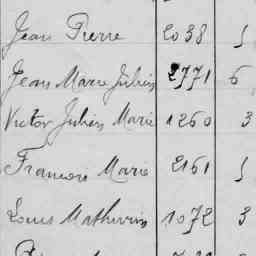 Jean Pierre 2038 5
Jean Marie Julien 2771 6
Victor Julien Marie 1260 3
Francois Marie 2161 5
Louis Mathurin 1072 3